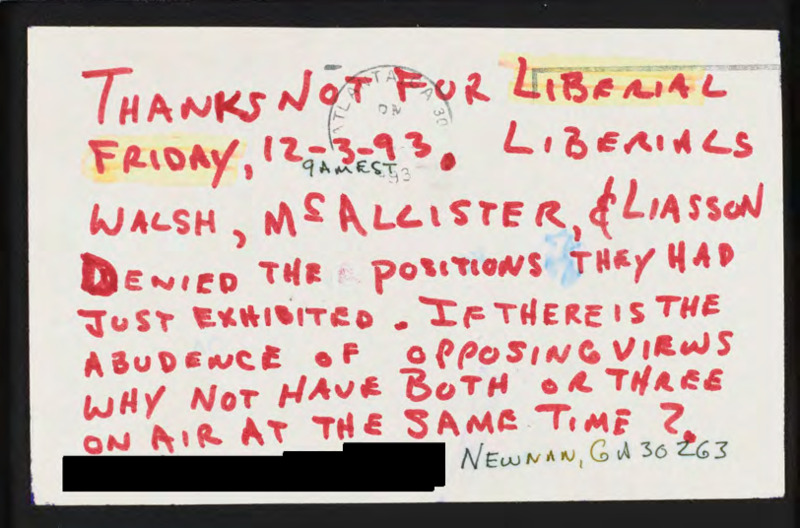 THANKS NOT FOR LIBERIAL
FRIDAY, 12-3-93. LIBERIALS
9AM EST
WALSH, McALLISTER, & LIASSON
DENIED THE POSITIONS THEY HAD
JUST EXHIBITED. IF THERE IS THE
ABUDENCE OF OPPOSING VIEWS
WHY NOT HAVE BOTH OR THREE
ON AIR AT THE SAME TIME?
NEWNAN, GA 30263
ATLANTA GA 30
93